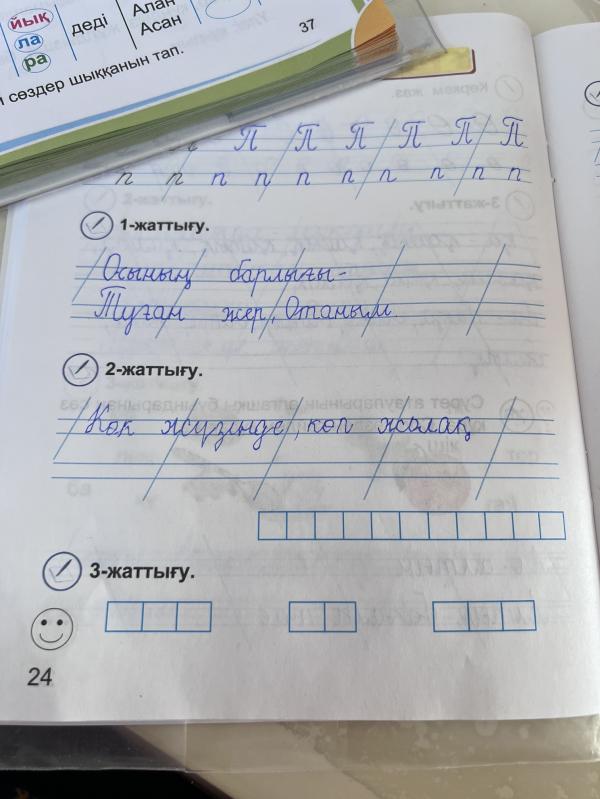 йық
ла
ра
деді
Алан
Асан
37
сөздер шыққанын тап.
П П П П П П
п п п п п п п п п
1-жаттығу.
Осының барлығы-
Туған жер, Отаным
2-жаттығу.
Көк жүзінде, көп жолақ
3-жаттығу.
24